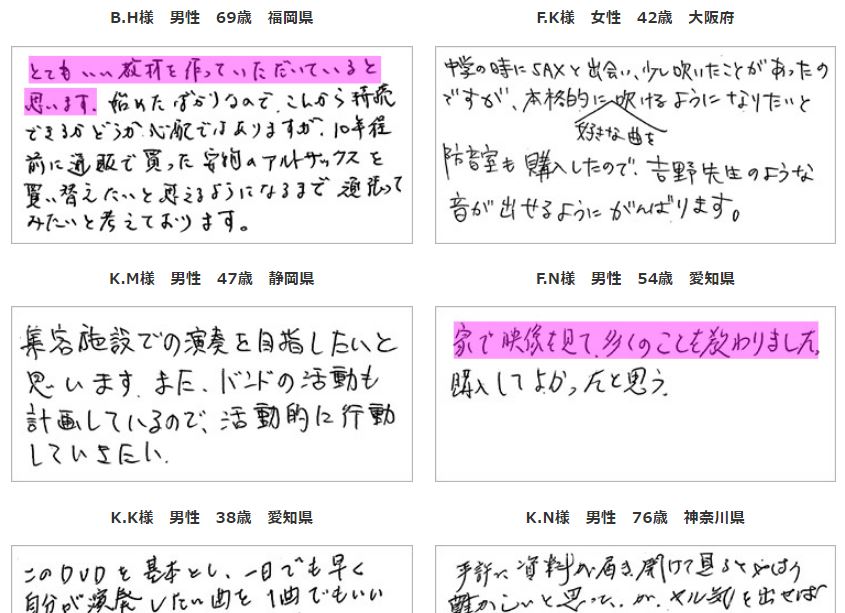 B.H様　男性　69歳　福岡県
とてもいい教材を作っていただいていると
思います。始めたばかりなので、これから持続
できるかどうか心配ではありますが、10年程
前に通販で買った安物のアルトサックスを
買い替えたいと思えるようになるまで頑張って
みたいと考えております。
F.K様　女性　42歳　大阪府
中学の時にSAXと出会い、少し吹いたことがあったの
ですが、本格的に吹けるようになりたいと
好きな曲を
防音室も購入したので、吉野先生のような
音が出せるようにがんばります。
K.M様　男性　47歳　静岡県
集客施設での演奏を目指したいと
思います。また、バンドの活動も
計画しているので、活動的に行動
していきたい。
F.N様　男性　54歳　愛知県
家で映像を見て、多くのことを教わりました。
購入してよかったと思う。
K.K様　男性　38歳　愛知県
このDVDを基本とし、一日でも早く
自分が演奏したい曲を1曲でもいい
K.N様　男性　76歳　神奈川県
手許に資料が届き、開けて見るとやはり
難かしいと思った。が、ヤル気を出せば